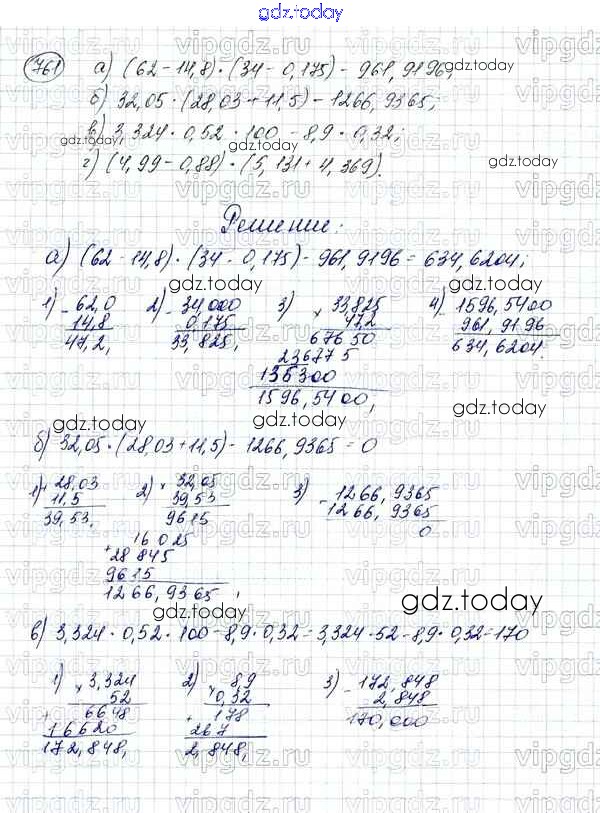 gdz.today
761 а) (62-14,8)·(34-0,175)-961,9196;
б) 32,05·(28,03+11,5)-1266,9365;
в) 3,324·0,52·100-8,9·0,32;
г) (4,99-0,88)·(5,131+4,369).
Решение:
а) (62-14,8)·(34-0,175)-961,9196=634,6204;
1) - 62,0 2) - 34,000 3) × 33,825 4) - 1596,5400
14,8 0,175 47,2 961,9196
47,2, 33,825, 67650 634,6204.
236775
135300
1596,5400,
б) 32,05·(28,03+11,5)-1266,9365=0
1) + 28,03 2) × 32,05 3) - 1266,9365
11,5 39,53 1266,9365
39,53, 9615 0
16025
+ 28845
9615
1266,9365,
в) 3,324·0,52·100-8,9·0,32=3,324·52-8,9·0,32=170
1) × 3,324 2) × 8,9 3) - 172,848
52 0,32 2,848
+ 6648 + 178 170,000
16620 267
172,848, 2,848,
gdz.today
gdz.today
gdz.today
gdz.today
gdz.today
gdz.today
gdz.today
gdz.today
gdz.today
gdz.today
vipgdz.ru